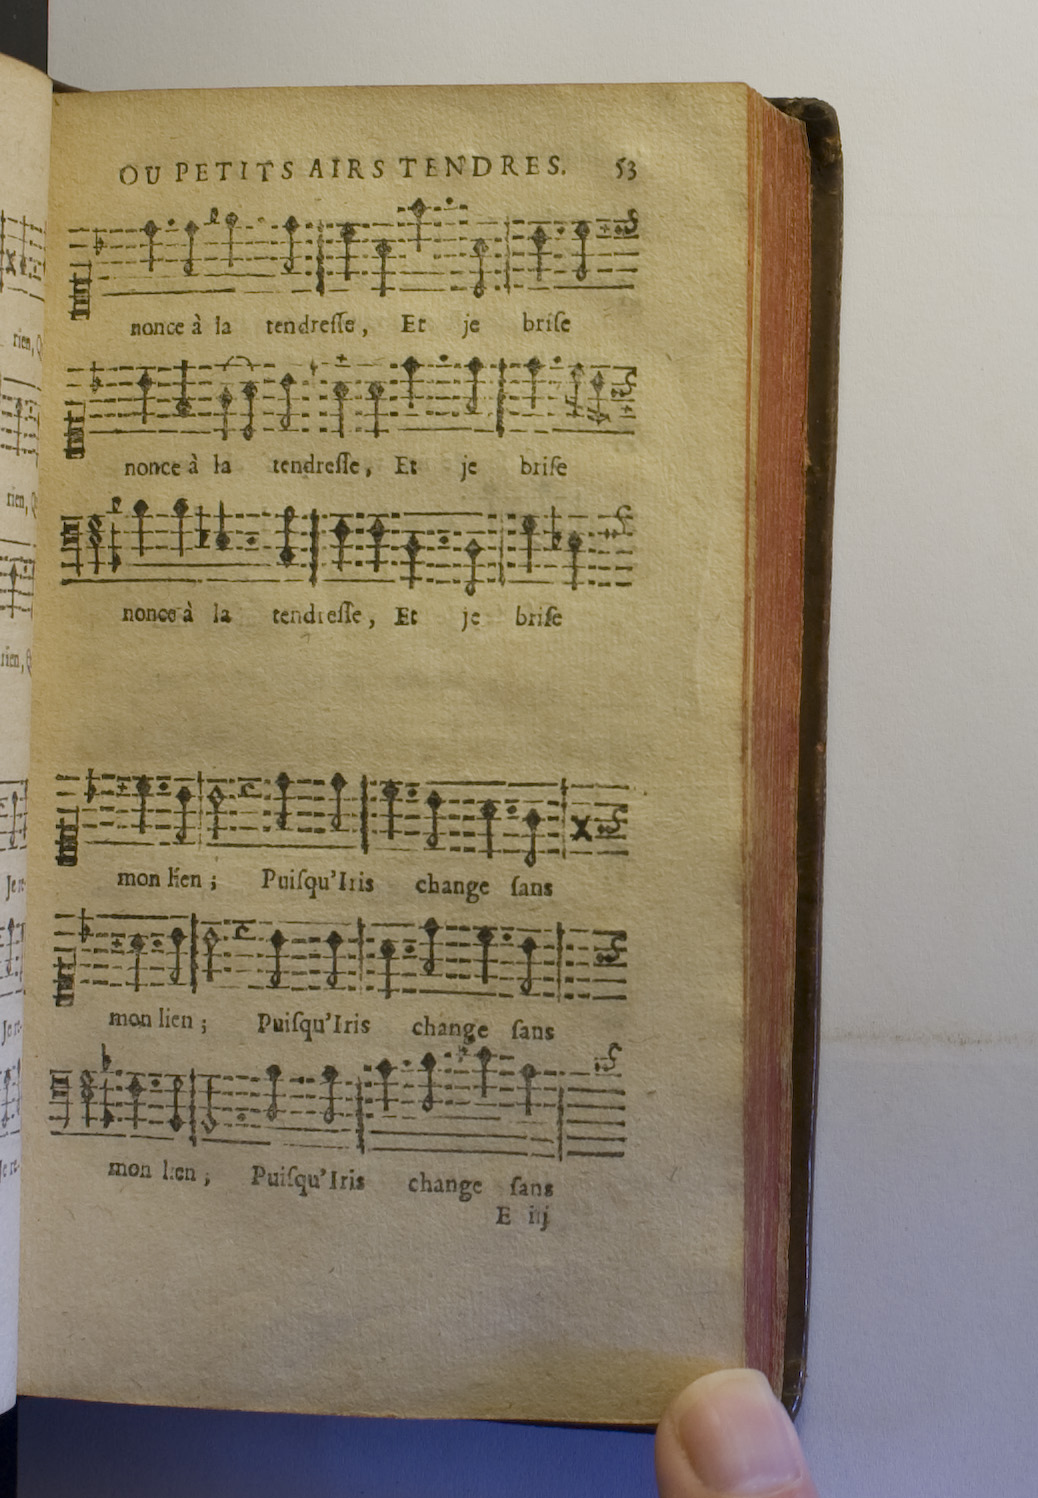 OU PETITS AIRS TENDRES. 53
nonce à la tendresse, Et je brise
nonce à la tendresse, Et je brise
nonce à la tendresse, Et je brise
rien,
rien,
rien,
mon lien ; Puisqu'Iris change sans
mon lien ; Puisqu'Iris change sans
mon lien ; Puisqu'Iris change sans
E iij